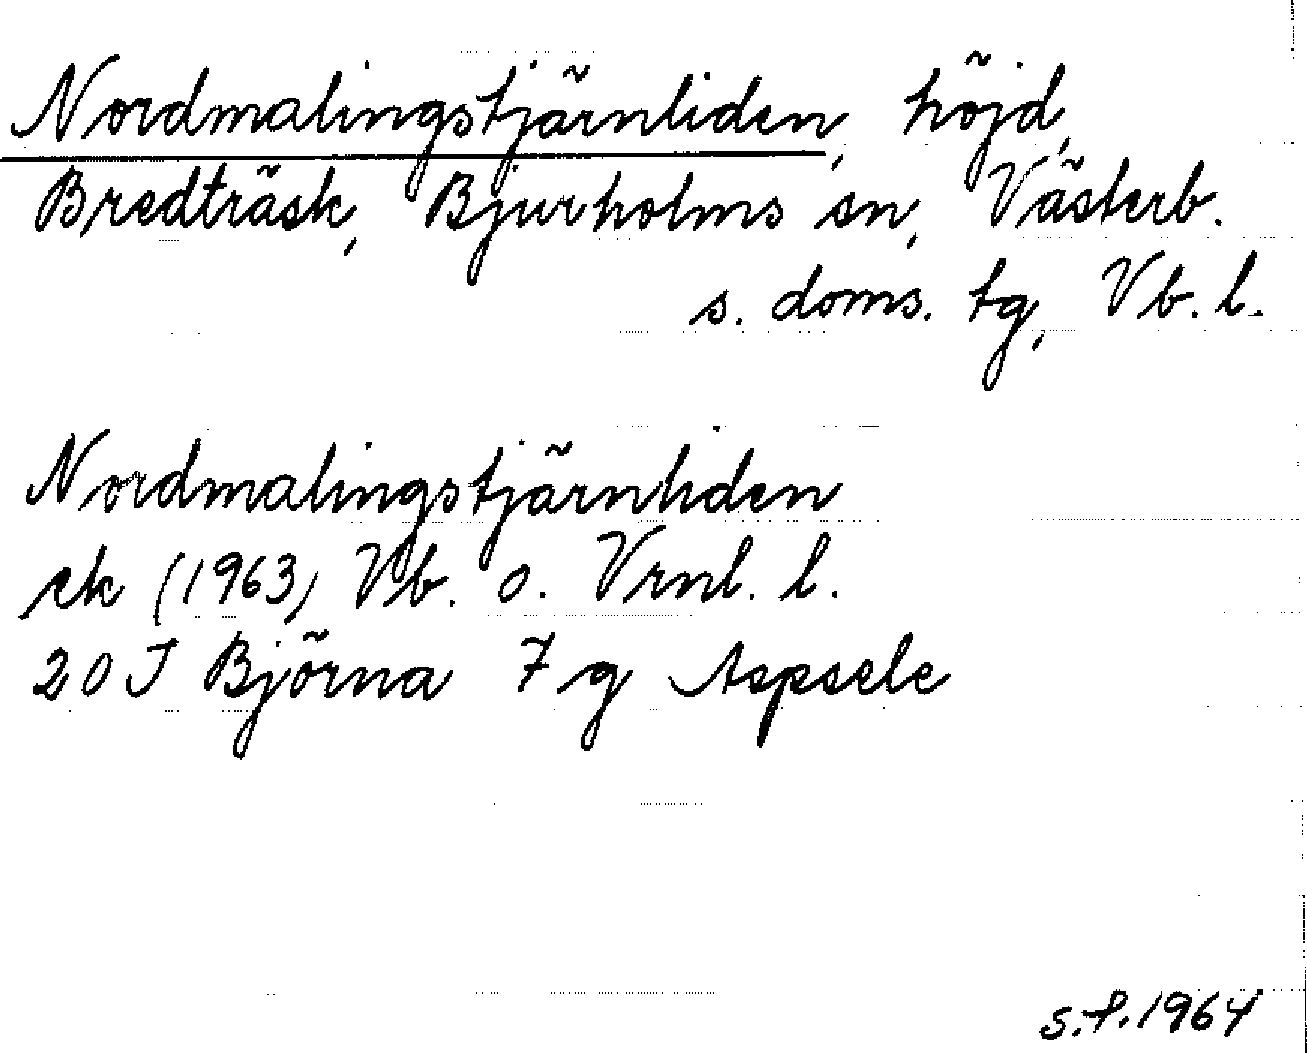 Nordmalingstjärnliden, höjd,
Bredträsk, Bjurholms sn, Västerb.
s. doms. tg, Vb. l.
Nordmalingstjärnliden
ek (1963) Vb. o. Vrnl. l.
20 J Björna 7 g Aspsele
s.f. 1964